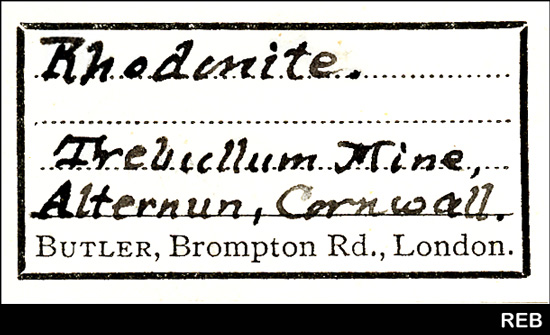 Rhodonite.
Trebullum Mine,
Alternun, Cornwall.
BUTLER, Brompton Rd., London.
REB